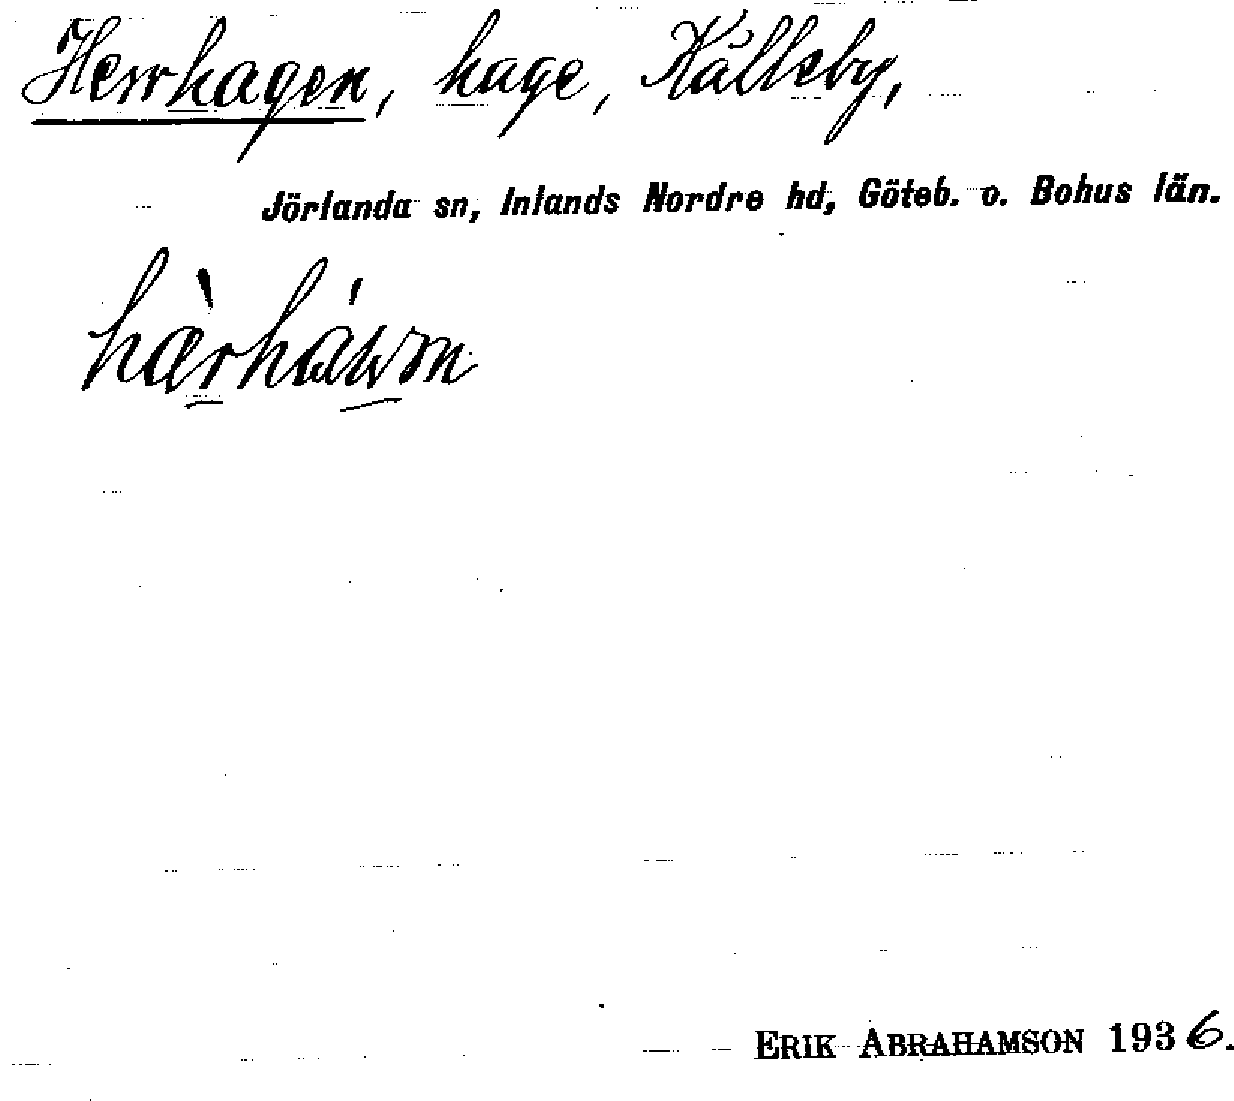 Herrhagen, hage, Källeby,
Jörlanda sn, Inlands Nordre hd, Göteb. o. Bohus län.
ERIK ABRAHAMSON 1936.